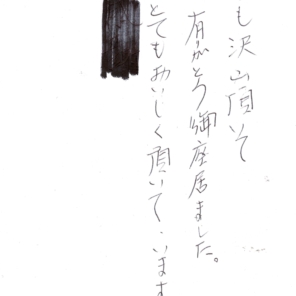 も沢山頂いて
有がとう御座居ました。
とてもおいしく頂いて、います